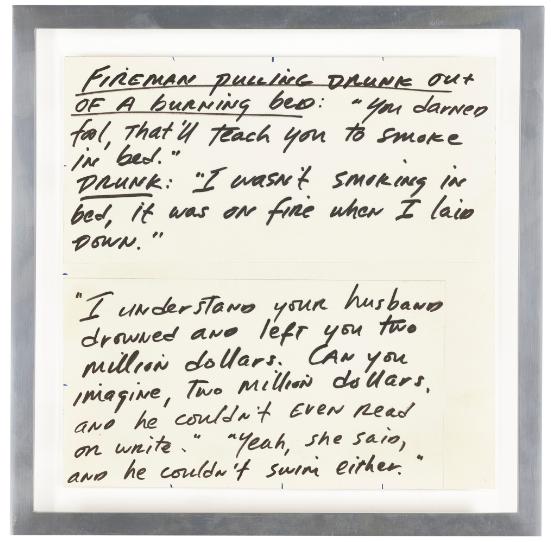 FIREMAN PULLING DRUNK OUT
OF A burning bed: "You darned
fool, That'll teach you to smoke
in bed."
DRUNK: "I wasn't smoking in
bed, it was on fire when I laid
down."
"I understand your husband
drowned and left you two
million dollars. CAN you
imagine, Two million dollars,
and he couldn't EVEN Read
or write." "Yeah, she said,
and he couldn't swim either."